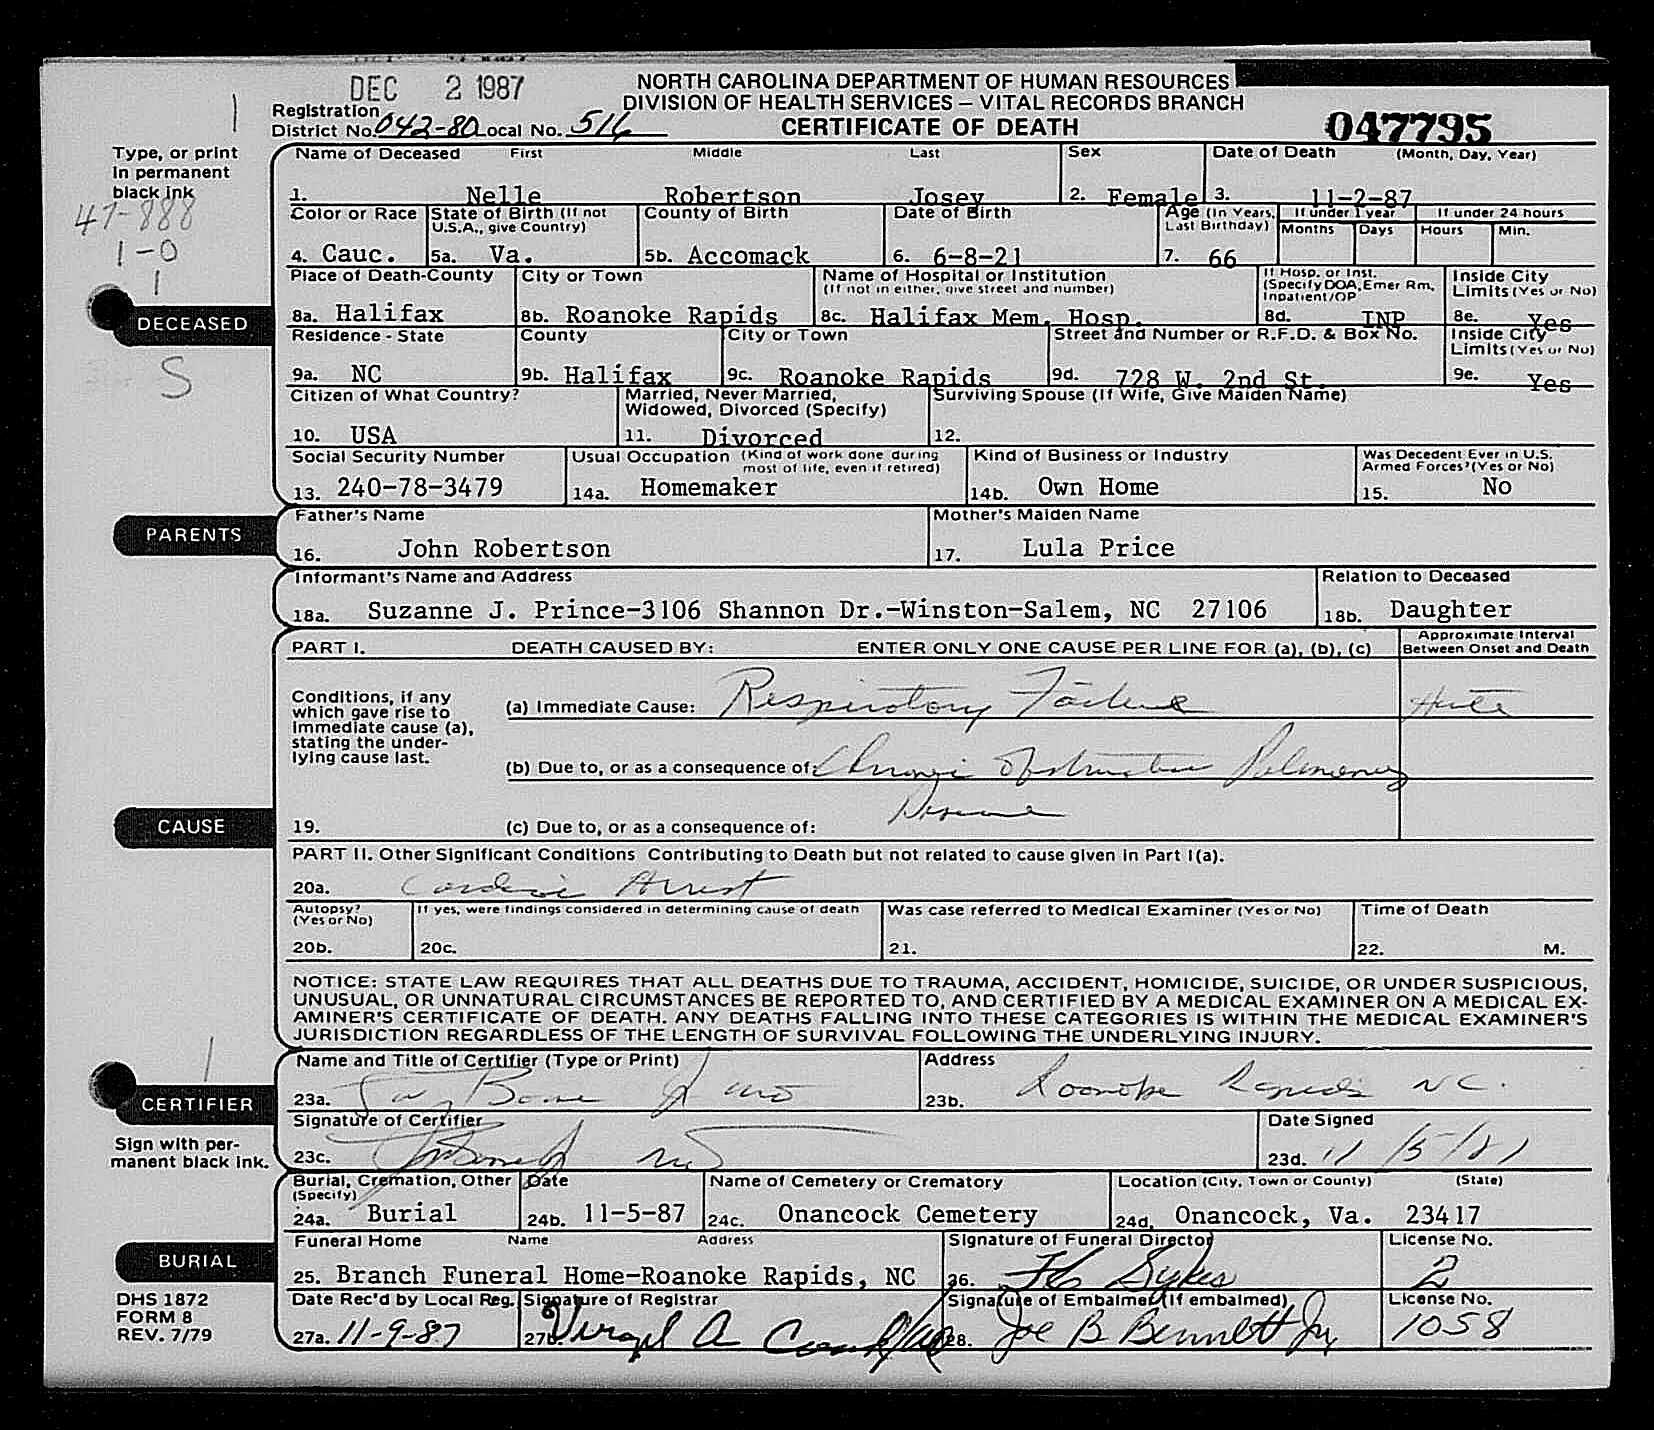 DEC 2 1987
NORTH CAROLINA DEPARTMENT OF HUMAN RESOURCES
DIVISION OF HEALTH SERVICES – VITAL RECORDS BRANCH
CERTIFICATE OF DEATH
Registration
District No. 042-80 Local No. 516
047795
Type, or print
in permanent
black ink
47-888
1-0
1
DECEASED
S
Name of Deceased First Middle Last Sex Date of Death (Month, Day, Year)
1. Nelle Robertson Josey 2. Female 3. 11-2-87
Color or Race State of Birth (If not U.S.A., give Country) County of Birth Date of Birth Age (In Years, Last Birthday) If under 1 year Months Days If under 24 hours Hours Min.
4. Cauc. 5a. Va. 5b. Accomack 6. 6-8-21 7. 66
Place of Death-County City or Town Name of Hospital or Institution (If not in either, give street and number) If Hosp. or Inst. (Specify DOA, Emer Rm, Inpatient/OP Inside City Limits (Yes or No)
8a. Halifax 8b. Roanoke Rapids 8c. Halifax Mem. Hosp. 8d. INP 8e. Yes
Residence - State County City or Town Street and Number or R.F.D. & Box No. Inside City Limits (Yes or No)
9a. NC 9b. Halifax 9c. Roanoke Rapids 9d. 728 W. 2nd St. 9e. Yes
Citizen of What Country? Married, Never Married, Widowed, Divorced (Specify) Surviving Spouse (If Wife, Give Maiden Name)
10. USA 11. Divorced 12.
Social Security Number Usual Occupation (Kind of work done during most of life, even if retired) Kind of Business or Industry Was Decedent Ever in U.S. Armed Forces? (Yes or No)
13. 240-78-3479 14a. Homemaker 14b. Own Home 15. No
PARENTS
Father's Name Mother's Maiden Name
16. John Robertson 17. Lula Price
Informant's Name and Address Relation to Deceased
18a. Suzanne J. Prince-3106 Shannon Dr.-Winston-Salem, NC 27106 18b. Daughter
PART I. DEATH CAUSED BY: ENTER ONLY ONE CAUSE PER LINE FOR (a), (b), (c) Approximate Interval Between Onset and Death
Conditions, if any
which gave rise to
immediate cause (a),
stating the under-
lying cause last.
(a) Immediate Cause: Respiratory Failure
(b) Due to, or as a consequence of: Chronic Obstructive Pulmonary
Disease
CAUSE
19. (c) Due to, or as a consequence of:
PART II. Other Significant Conditions Contributing to Death but not related to cause given in Part I(a).
20a. Cardiac Arrest
Autopsy? (Yes or No) If yes, were findings considered in determining cause of death Was case referred to Medical Examiner (Yes or No) Time of Death
20b. 20c. 21. 22. M.
NOTICE: STATE LAW REQUIRES THAT ALL DEATHS DUE TO TRAUMA, ACCIDENT, HOMICIDE, SUICIDE, OR UNDER SUSPICIOUS,
UNUSUAL, OR UNNATURAL CIRCUMSTANCES BE REPORTED TO, AND CERTIFIED BY A MEDICAL EXAMINER ON A MEDICAL EX-
AMINER'S CERTIFICATE OF DEATH. ANY DEATHS FALLING INTO THESE CATEGORIES IS WITHIN THE MEDICAL EXAMINER'S
JURISDICTION REGARDLESS OF THE LENGTH OF SURVIVAL FOLLOWING THE UNDERLYING INJURY.
CERTIFIER
Sign with per-
manent black ink.
Name and Title of Certifier (Type or Print) Address
23a. 23b. Roanoke Rapids NC.
Signature of Certifier Date Signed
23c. 23d. 11/5/87
Burial, Cremation, Other (Specify) Date Name of Cemetery or Crematory Location (City, Town or County) (State)
24a. Burial 24b. 11-5-87 24c. Onancock Cemetery 24d. Onancock, Va. 23417
BURIAL
Funeral Home Name Address Signature of Funeral Director License No.
25. Branch Funeral Home-Roanoke Rapids, NC 26. Sykes 2
Date Rec'd by Local Reg. Signature of Registrar Signature of Embalmer (If embalmed) License No.
27a. 11-9-87 27b. Virgil A 28. Joe B Bennett Jr 1058
DHS 1872
FORM 8
REV. 7/79